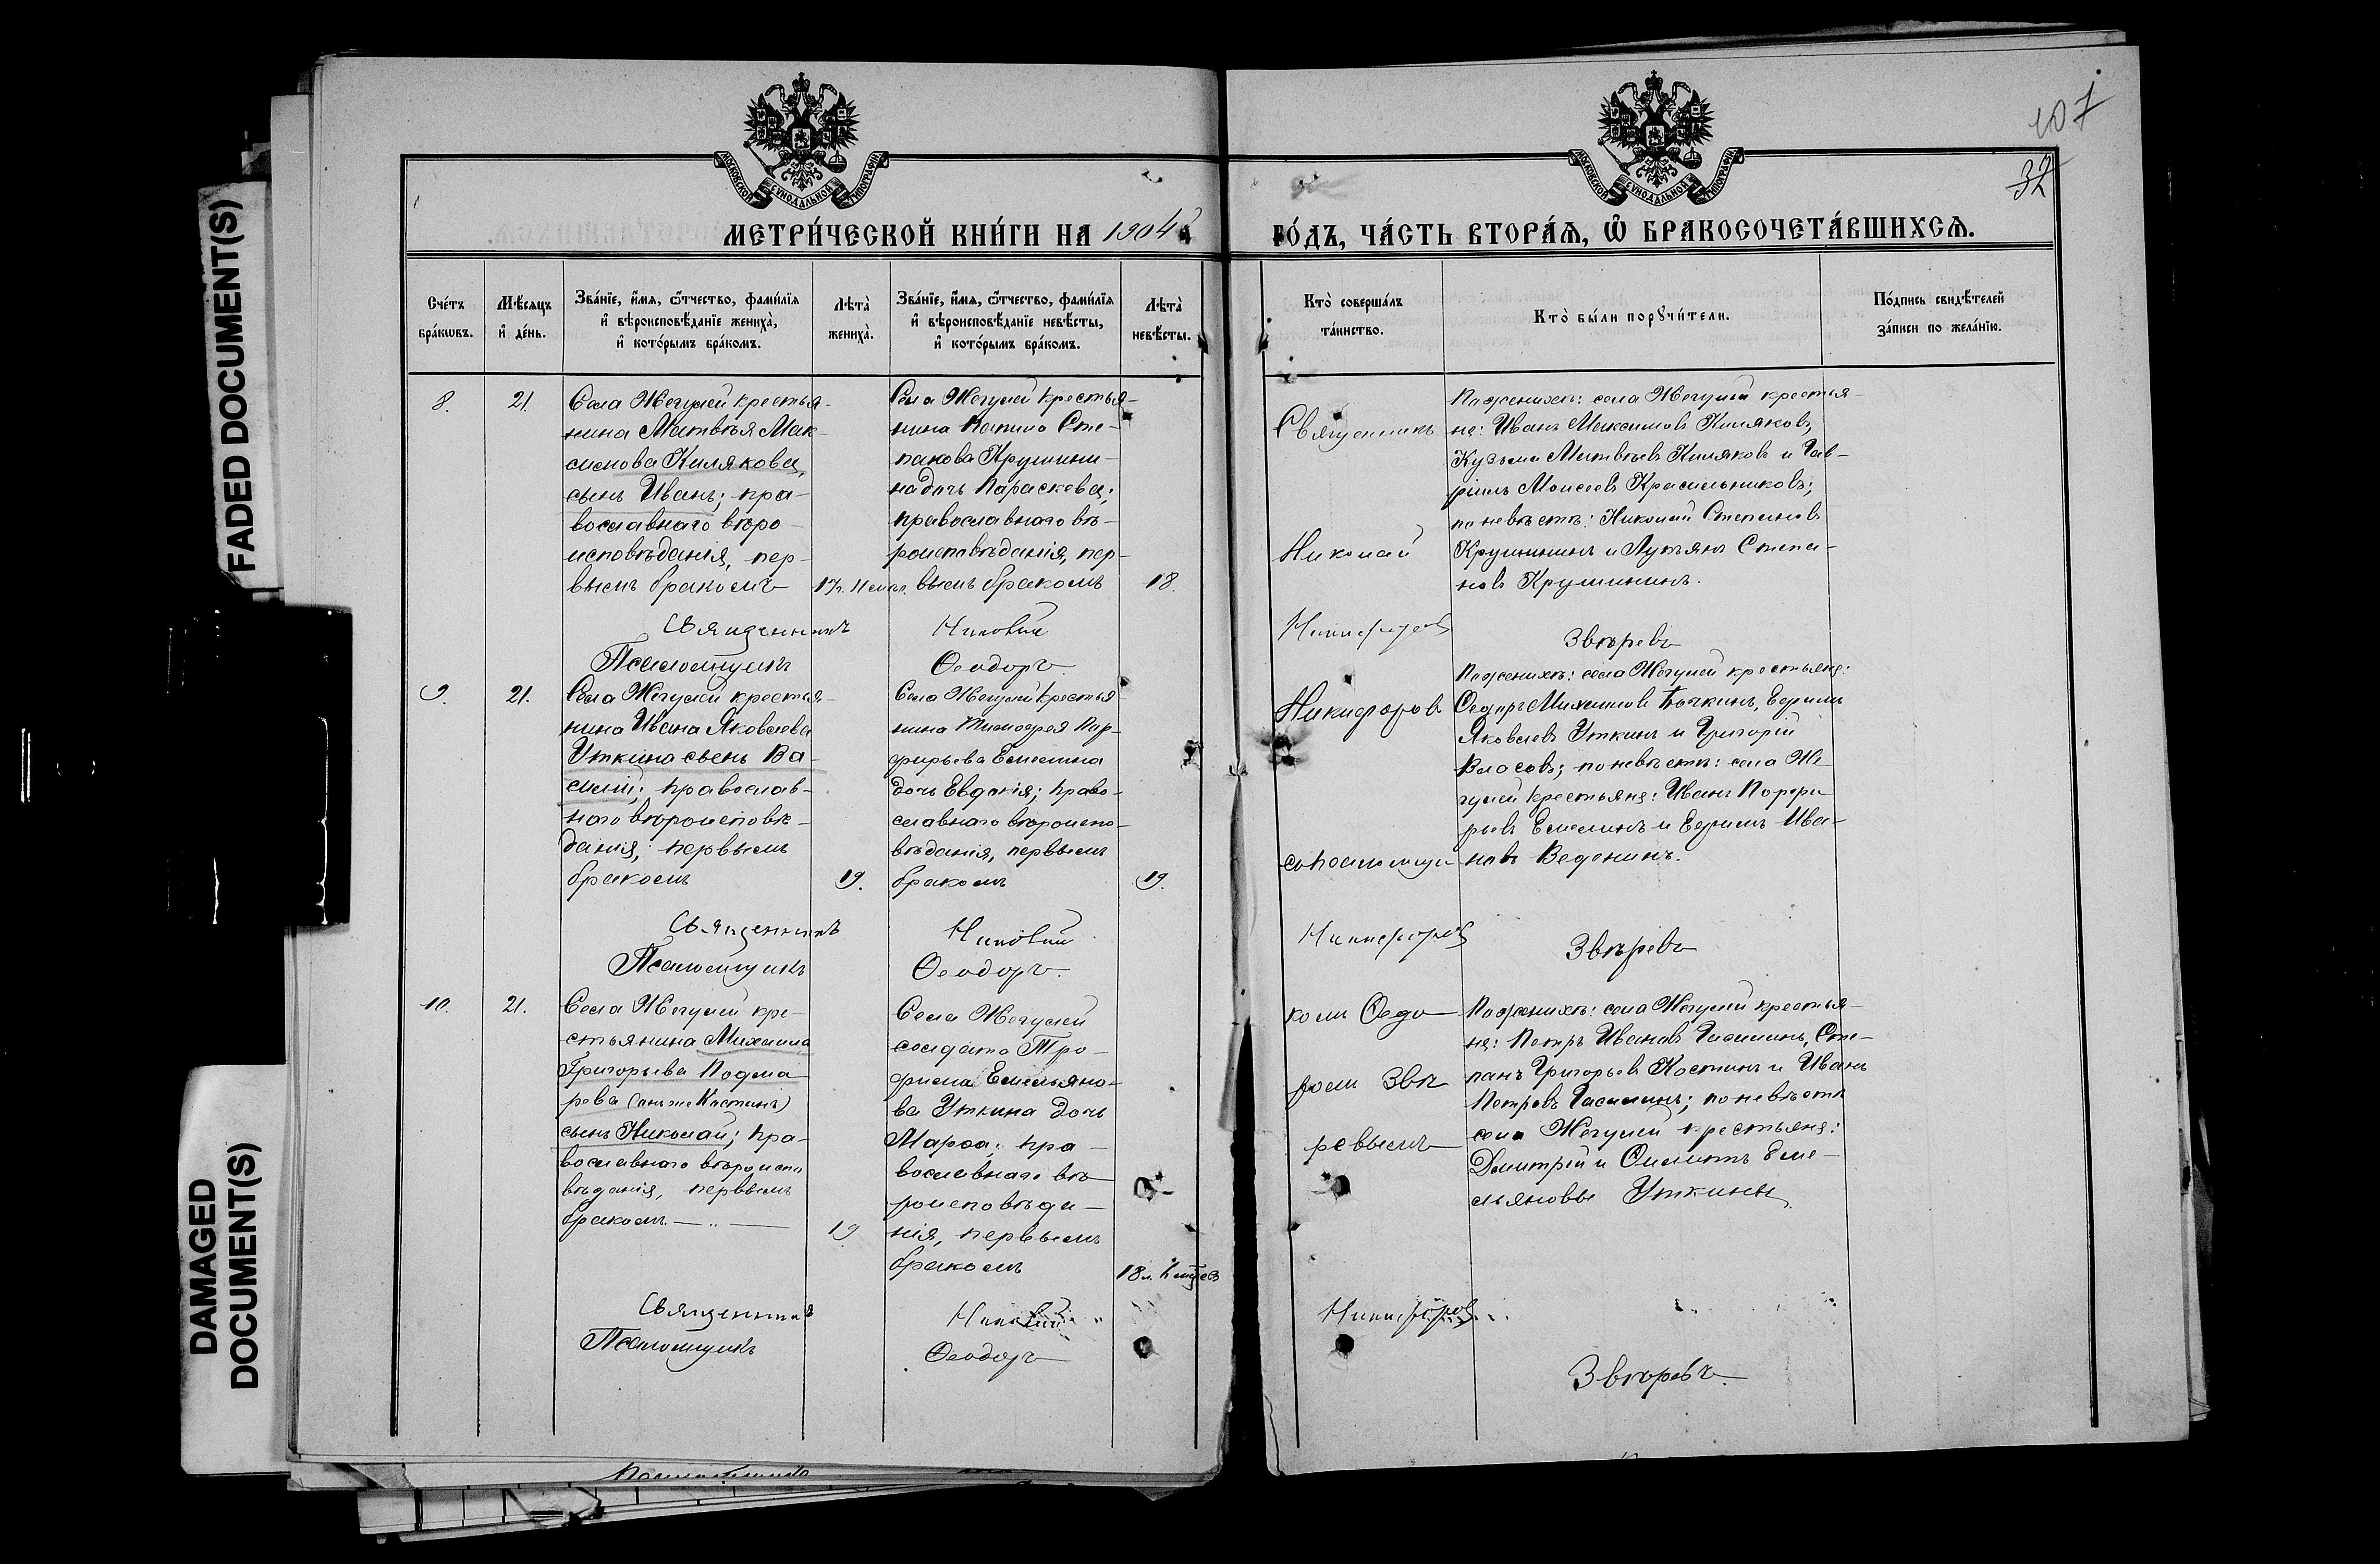 FADED DOCUMENT(S)
DAMAGED
DOCUMENT(S)
107
32
МОСКОВСКОЙ СѴНОДАЛЬНОЙ ТИПОГРАФІИ
МОСКОВСКОЙ СѴНОДАЛЬНОЙ ТИПОГРАФІИ
МЕТРИ́ЧЕСКОЙ КНИ́ГИ НА 1904й
ГО́ДЪ, ЧА́СТЬ ВТОРА́Ѧ, Ѽ БРАКОСОЧЕТА́ВШИХСѦ.
Сче́тъ
бра́кѡвъ.
Мѣ́сяцъ
и҆ де́нь.
Зва́нїе, и҆́мя, ѻ҆́тчество, фами́лїя
и҆ вѣроисповѣ́данїе жениха̀,
и҆ кото́рымъ бра́комъ.
Лѣта̀
жениха̀.
Зва́нїе, и҆́мя, ѻ҆́тчество, фами́лїя
и҆ вѣроисповѣ́данїе невѣ́сты,
и҆ кото́рымъ бра́комъ.
Лѣта̀
невѣ́сты.
Кто̀ соверша́лъ
та́инство.
Кто̀ бы́ли порꙋчи́тели.
По́дпись свидѣ́телей
за́писи по жела́нїю.
8.
21.
Села Жегулей крестья-
нина Матвѣя Мак-
симова Килякова,
сынъ Иванъ; пра-
вославнаго вѣро-
исповѣданія, пер-
вымъ бракомъ
Села Жегулей крестья-
нина Сте-
панова Крушини-
на дочь Параскева;
православнаго вѣ-
роисповѣданія, пер-
вымъ бракомъ
18.
Священникъ
Николай
Никифоровъ
По женихѣ: села Жегулей крестья-
не: Иванъ Максимовъ Киляковъ,
Кузьма Матвѣевъ Киляковъ и Гав-
ріилъ Моисеевъ Красильниковъ;
по невѣстѣ: Николай Степановъ
Крушининъ и Лукьянъ Степа-
новъ Крушининъ.
Священникъ
Никифоровъ
Псаломщикъ
Ѳеодоръ
Звѣревъ
9.
21.
Села Жегулей крестья-
нина Ивана Яковлева
Уткина сынъ Ва-
силій; православ-
наго вѣроисповѣ-
данія; первымъ
бракомъ
19.
Села Жегулей крестья-
нина Тимофея Пор-
фирьева Емелина
дочь Евдокія; право-
славнаго вѣроиспо-
вѣданія, первымъ
бракомъ
19.
съ псаломщи
По женихѣ: села Жегулей крестьяне:
Ѳедоръ Михаиловъ Ефимъ
Яковлевъ Уткинъ и Григорій
Власовъ; по невѣстѣ: села Же-
гулей крестьяне: Иванъ Порфи-
рьевъ Емелинъ и Ефимъ Ива-
новъ Веденинъ.
Священникъ
Никифоровъ
Псаломщикъ
Ѳеодоръ.
Звѣревъ
10.
21.
Села Жегулей кре-
стьянина Михаила
Григорьева Подма-
рева (онъ же Костинъ)
сынъ Николай; пра-
вославнаго вѣроиспо
вѣданія, первымъ
бракомъ
19
Села Жегулей
солдата Тро-
фима Емельяно-
ва Уткина дочь
Марѳа; пра-
вославнаго вѣ-
роисповѣда-
нія, первымъ
бракомъ
комъ Ѳедо
ромъ Звѣ
ревымъ
По женихѣ: села Жегулей крестья-
не: Петръ Ивановъ Сте-
панъ Григорьевъ Костинъ и Иванъ
Петровъ по невѣстѣ
села Жегулей крестьяне:
Дмитрій и Еме-
льяновы Уткины.
Священникъ
Никифоровъ
Псаломщикъ
Ѳеодоръ
Звѣревъ.